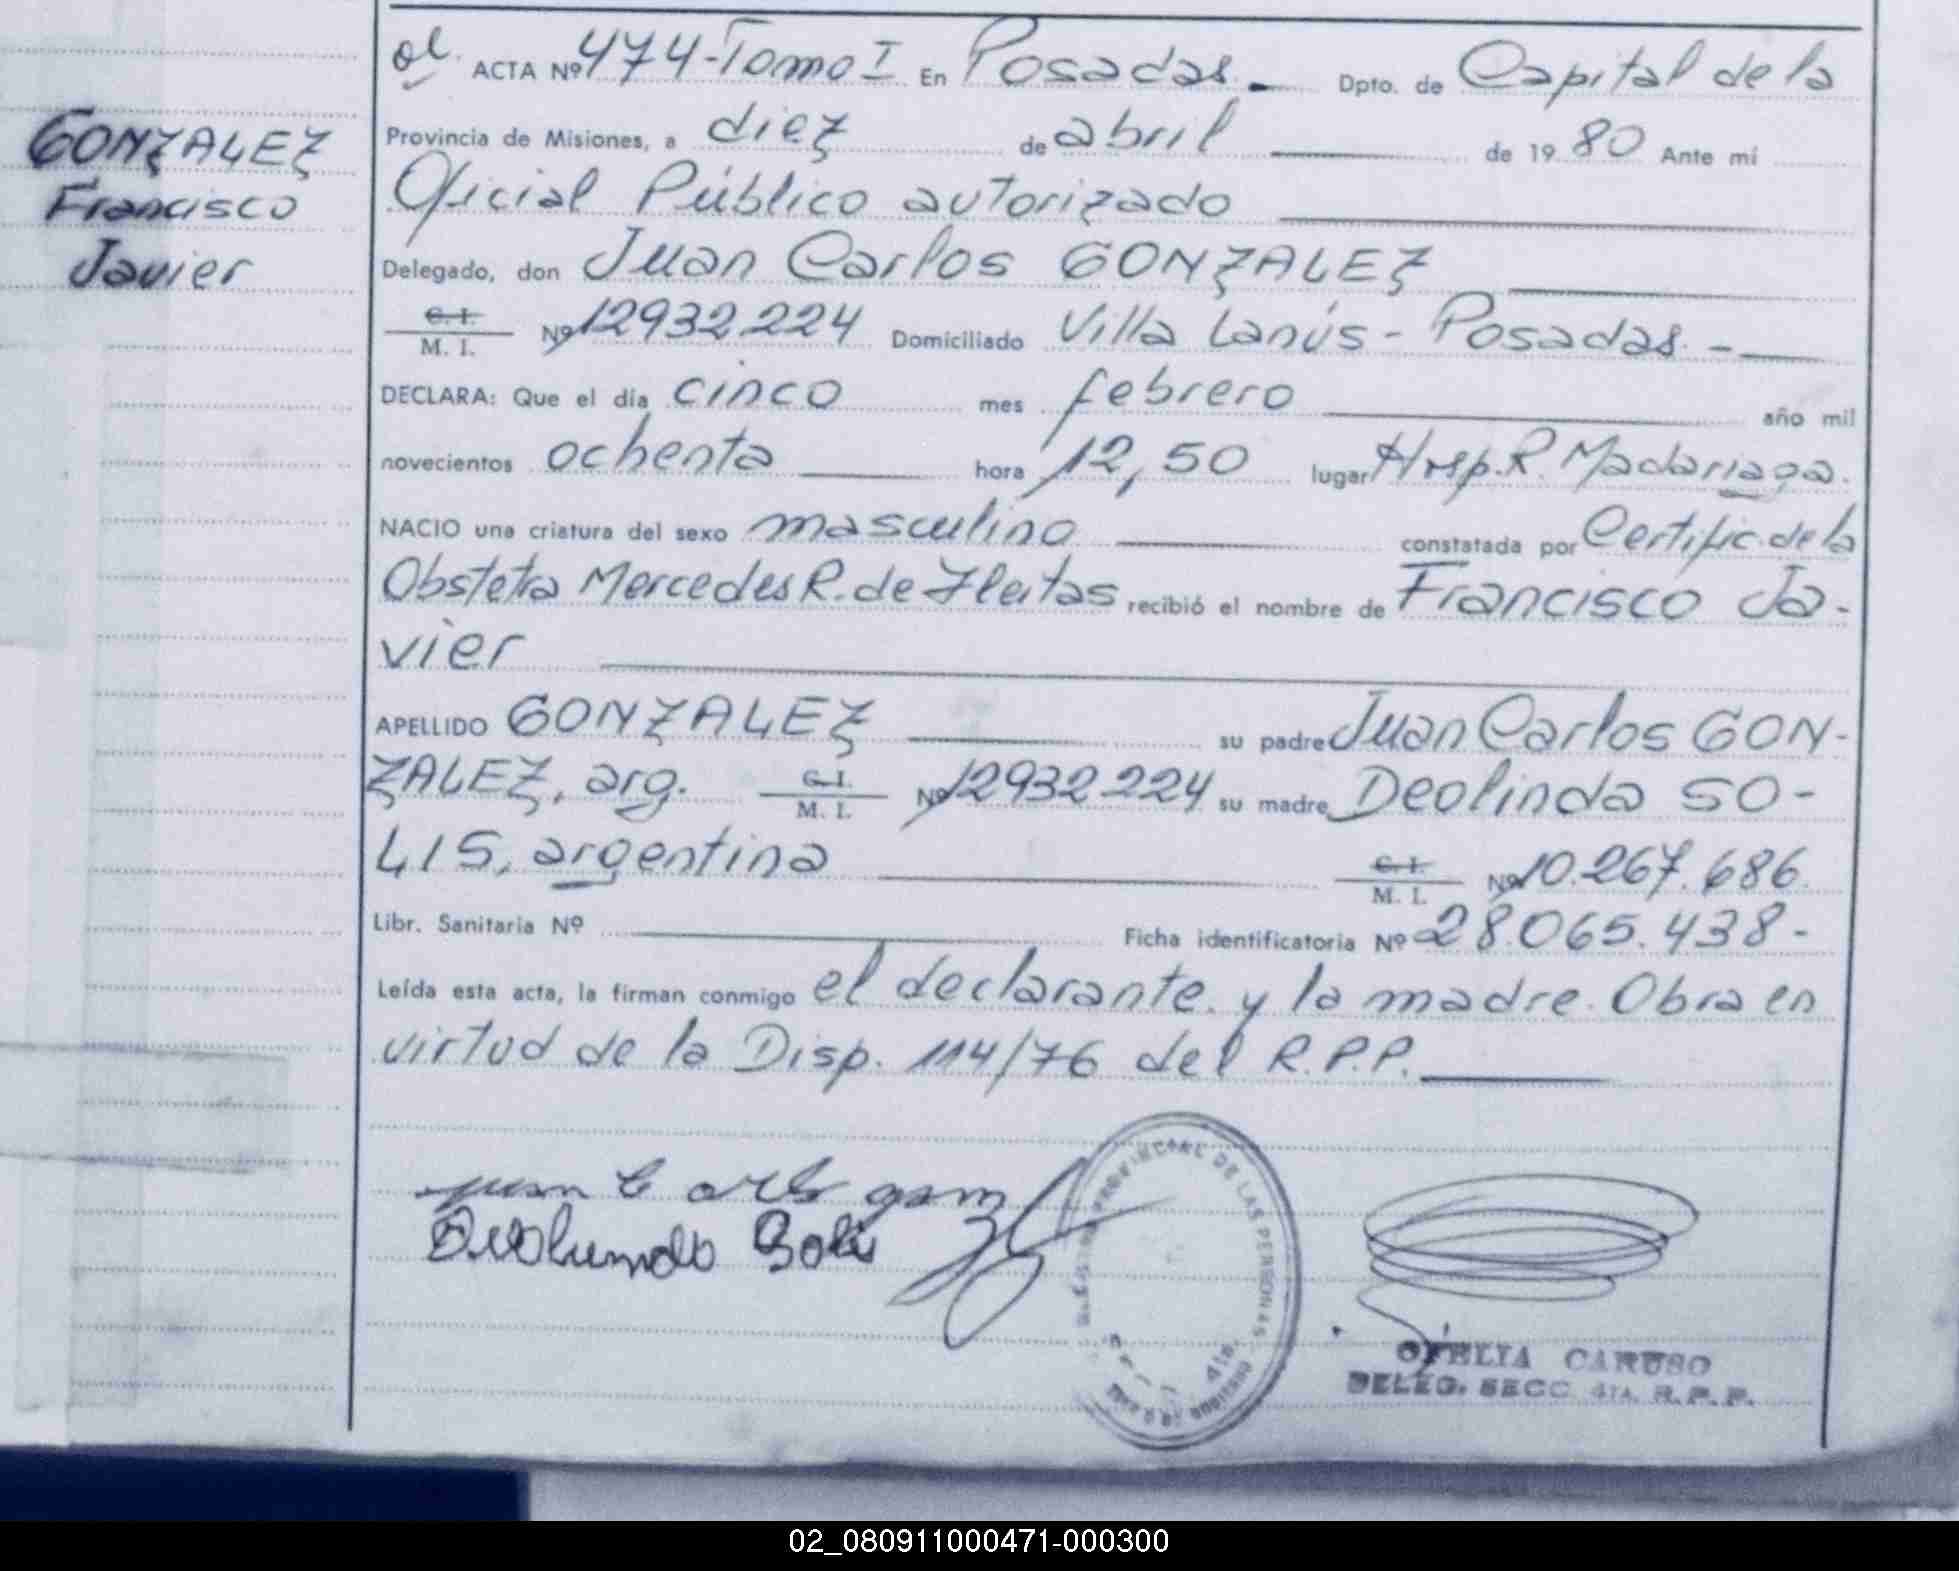 GONZALEZ
Francisco
Javier
ACTA Nº 474-Tomo I En Posadas.- Dpto. de Capital de la
Provincia de Misiones, a diez de abril de 1980 Ante mi
Oficial Público autorizado
Delegado, don Juan Carlos GONZALEZ
C. I.
M. I. Nº 12932224 Domiciliado Villa Lanús - Posadas.-
DECLARA: Que el día cinco mes febrero año mil
novecientos ochenta hora 12,50 lugar Hosp. R. Madariaga.
NACIO una criatura del sexo masculino constatada por Certific. de la
Obstetra Mercedes R. de Fleitas recibió el nombre de Francisco Ja-
vier
APELLIDO GONZALEZ su padre Juan Carlos GON-
ZALEZ, arg. C. I. M. I. Nº 12932224 su madre Deolinda SO-
LIS, argentina C. I. M. I. Nº 10.267.686.
Libr. Sanitaria Nº Ficha identificatoria Nº 28.065.438-
Leída esta acta, la firman conmigo el declarante y la madre. Obra en
virtud de la Disp. 114/76 del R.P.P.
PROVINCIAL DE LAS PERSONAS
OFELIA CARUSO
DELEG. SECC. 4TA. R. P. P.
02_080911000471-000300